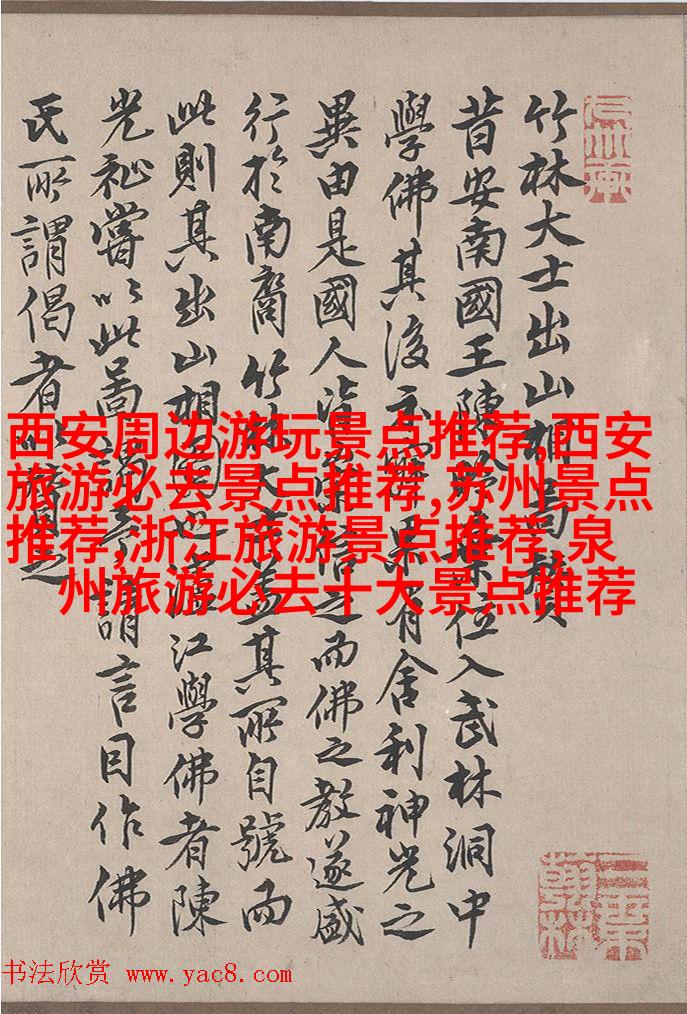 竹林大士出山相
昔安南國王陳位入武林洞中
學佛其後示解果有舍利神光之
異由是國人信之而佛之教遂盛
行於南裔竹林大士蓋其所自號而
此則其出山相圖也江學佛者陳
光祉嘗以此圖謁予請言因作佛
氏所謂偈者以贈之
西安周边游玩景点推荐,西安
旅游必去景点推荐,苏州景点
推荐,浙江旅游景点推荐,泉
州旅游必去十大景点推荐
书法欣赏 www.yac8.com